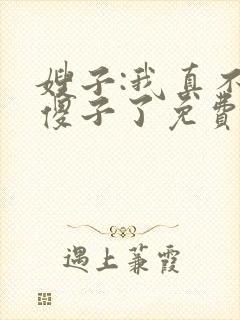 嫂子:我真不
傻子了免费
遇上蒹霞